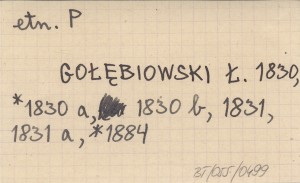 etn. P
GOŁĘBIOWSKI Ł. 1830,
*1830 a, 1830 b, 1831,
1831 a, *1884
BT/OIS/0499